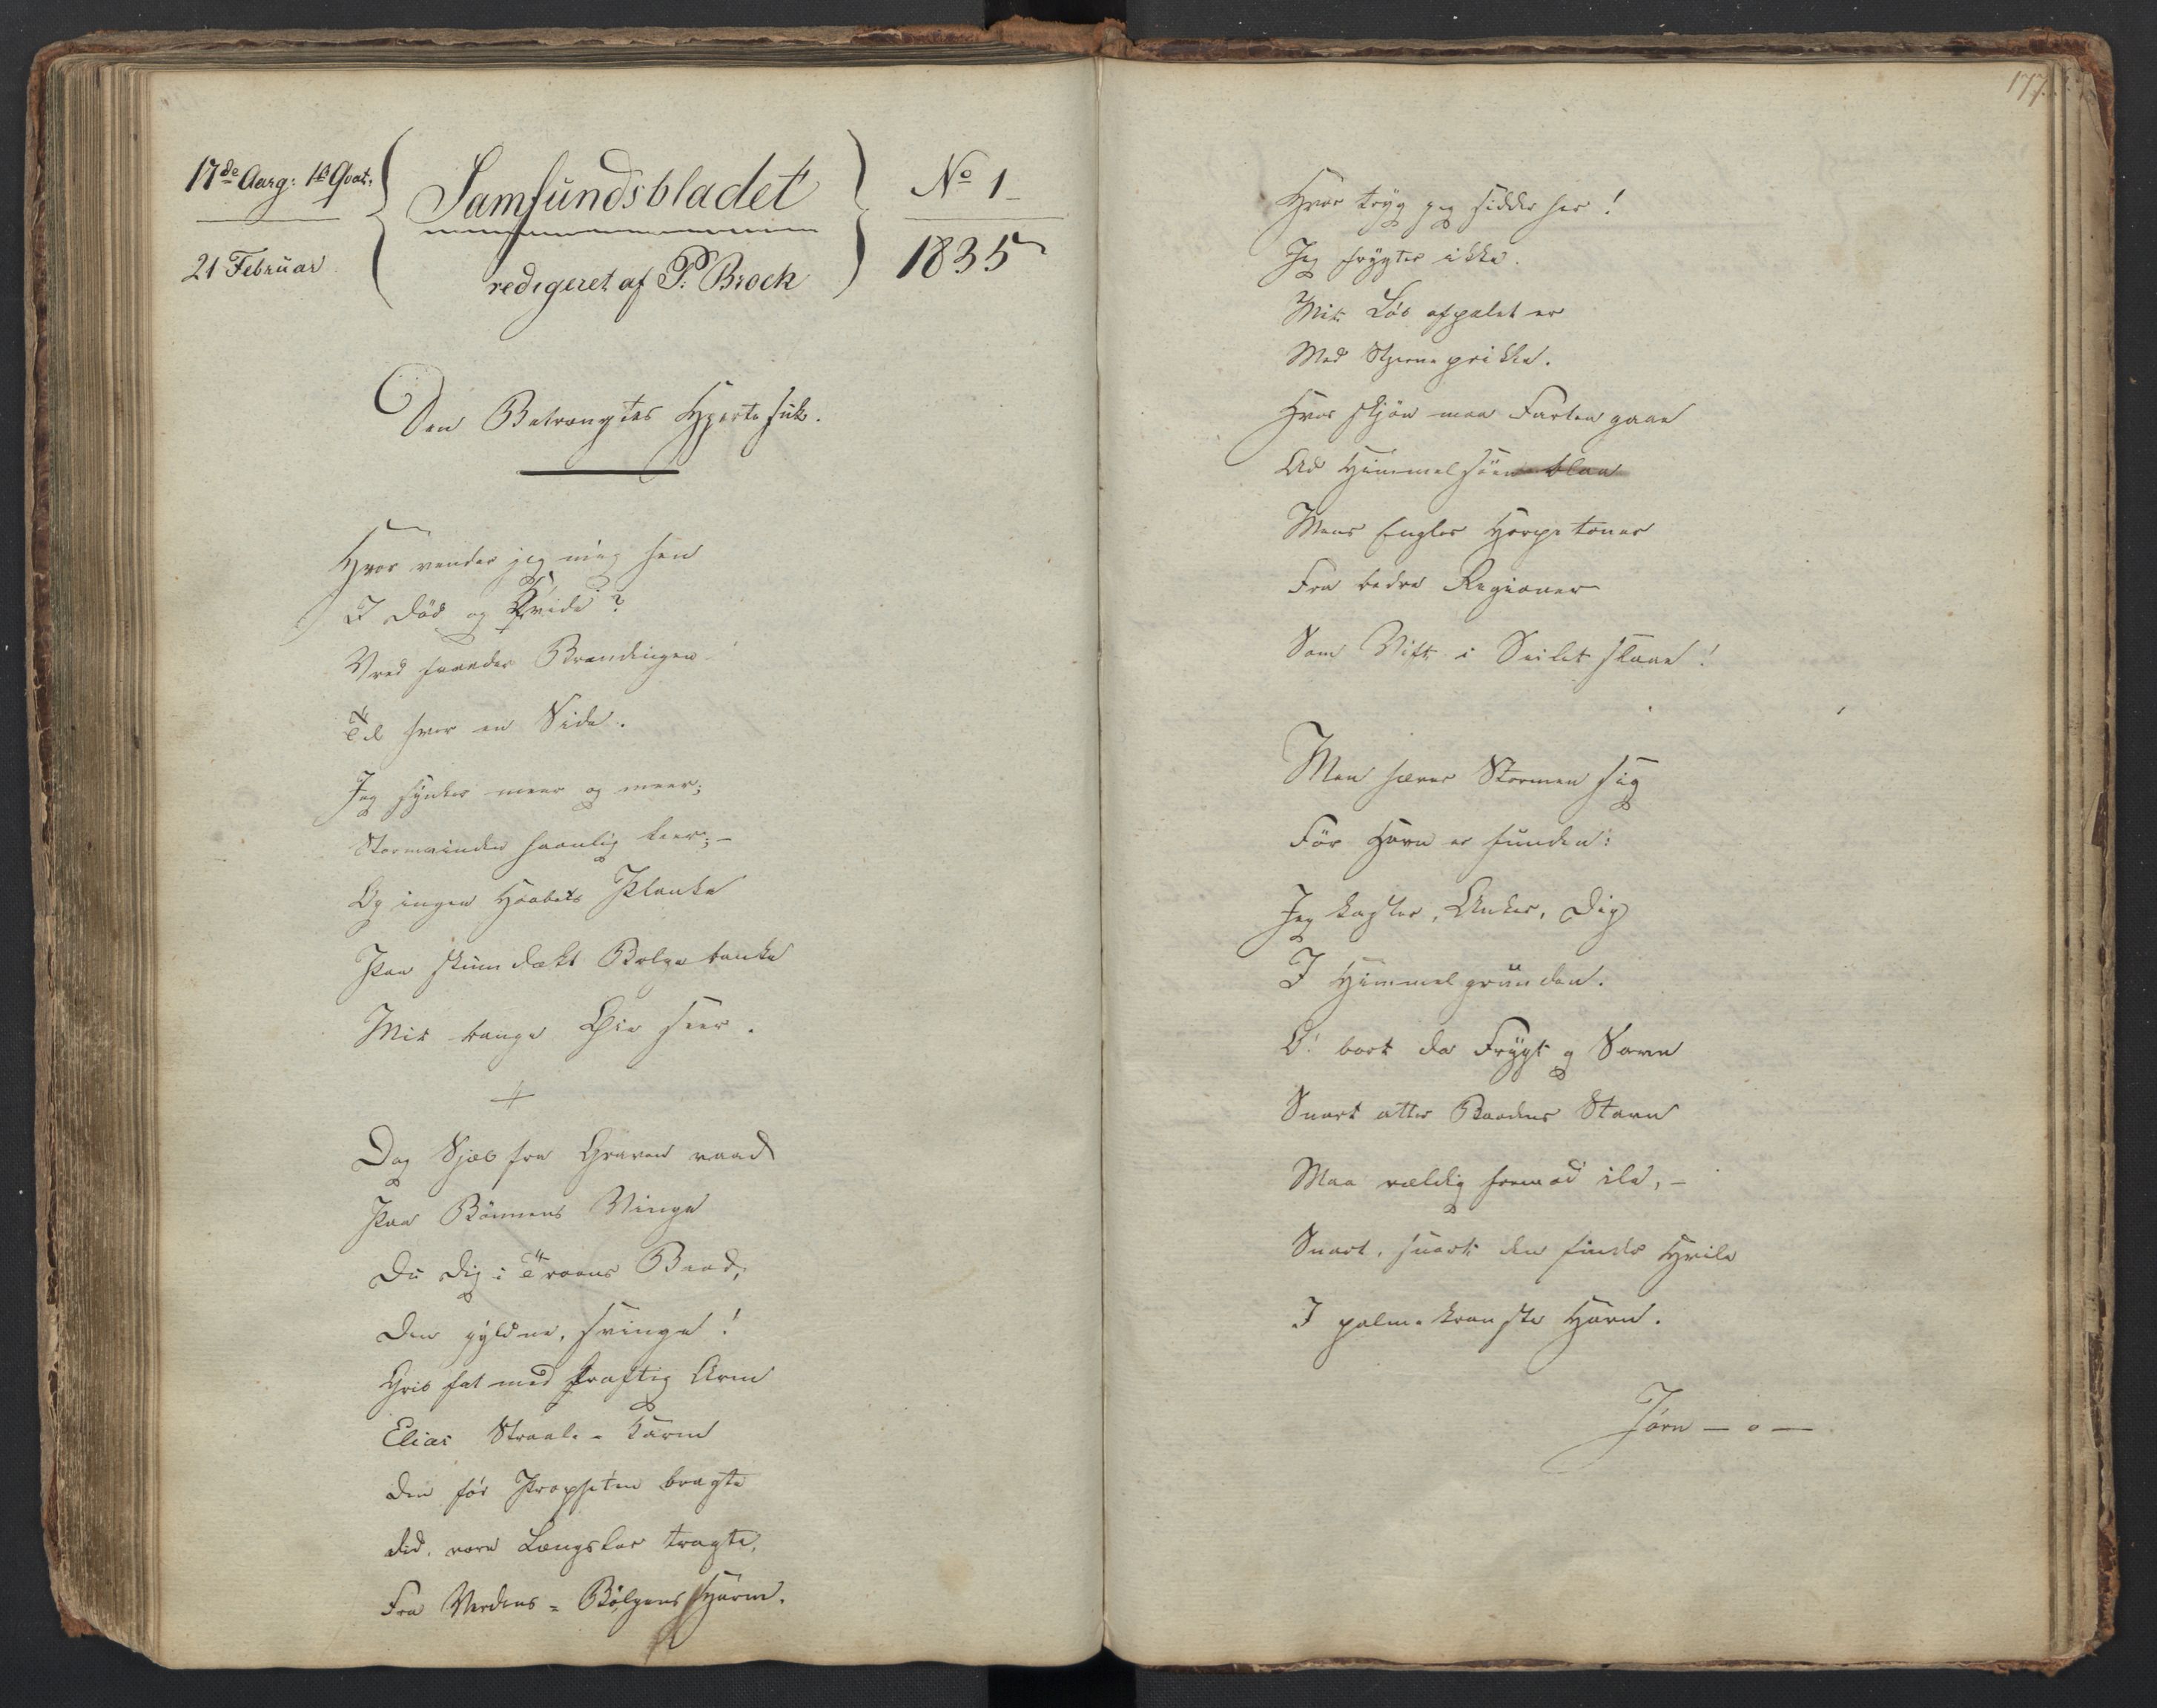 17de Aarg: 1ste Qvat:
21 Februar
Samfundsbladet
redigeret af P. Brock
No 1
1835
Den Betrængtes Hjertesuk.
Hvor vender jeg mig hen
I Död og Qvide?
Vred fraader Brændingen
Til hver en Side.
Jeg synker meer og meer;
Stormvinden haanlig leer; –
Og ingen Haabets Planke
Paa skumdækt Bølgebanke
Mit bange Øie seer.
Dog Sjæl fra Graven vaad
Paa Bönnens Vinge
Du dig i Troens Baad,
Den gyldne, svinge!
Grib fat med kraftig Arm
Elias Straale-Karm
Den för Propheten bragte
did, vore Længsler tragte,
Fra Verdens-Bölgens Harm.
177.
Hvor tryg jeg sidder her!
Jeg frygter ikke.
Mit Løb afpælet er
Med Stjerneprikke.
Hvor skjön maa Farten gaae
Ad Himmelsöen blaa
Mens Engles Harpetoner
Fra bedre Regioner
Som Vift i Seilet slaae!
Men hæver Stormen sig
För Havn er funden:
Jeg kaster, Anker, dig
I Himmelgrunden.
O! bort da Frygt og Savn
Snart atter Baadens Stavn
Maa vældig fremad ile, –
Snart, snart den finder Hvile
I palmekrandste Havn.
Jörn — o —